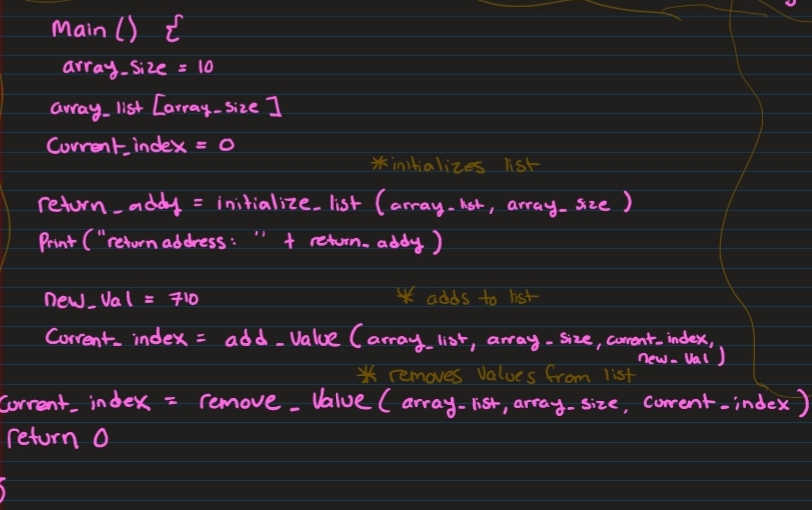 Main () {
array_size = 10
array_list [array_size]
Current_index = 0
* initializes list
return_addy = initialize_list (array_list, array_size)
Print ("return address: " + return_addy)
new_val = 710
* adds to list
Current_index = add_value (array_list, array_size, current_index,
new_val)
* removes values from list
current_index = remove_value (array_list, array_size, current_index)
return 0
}